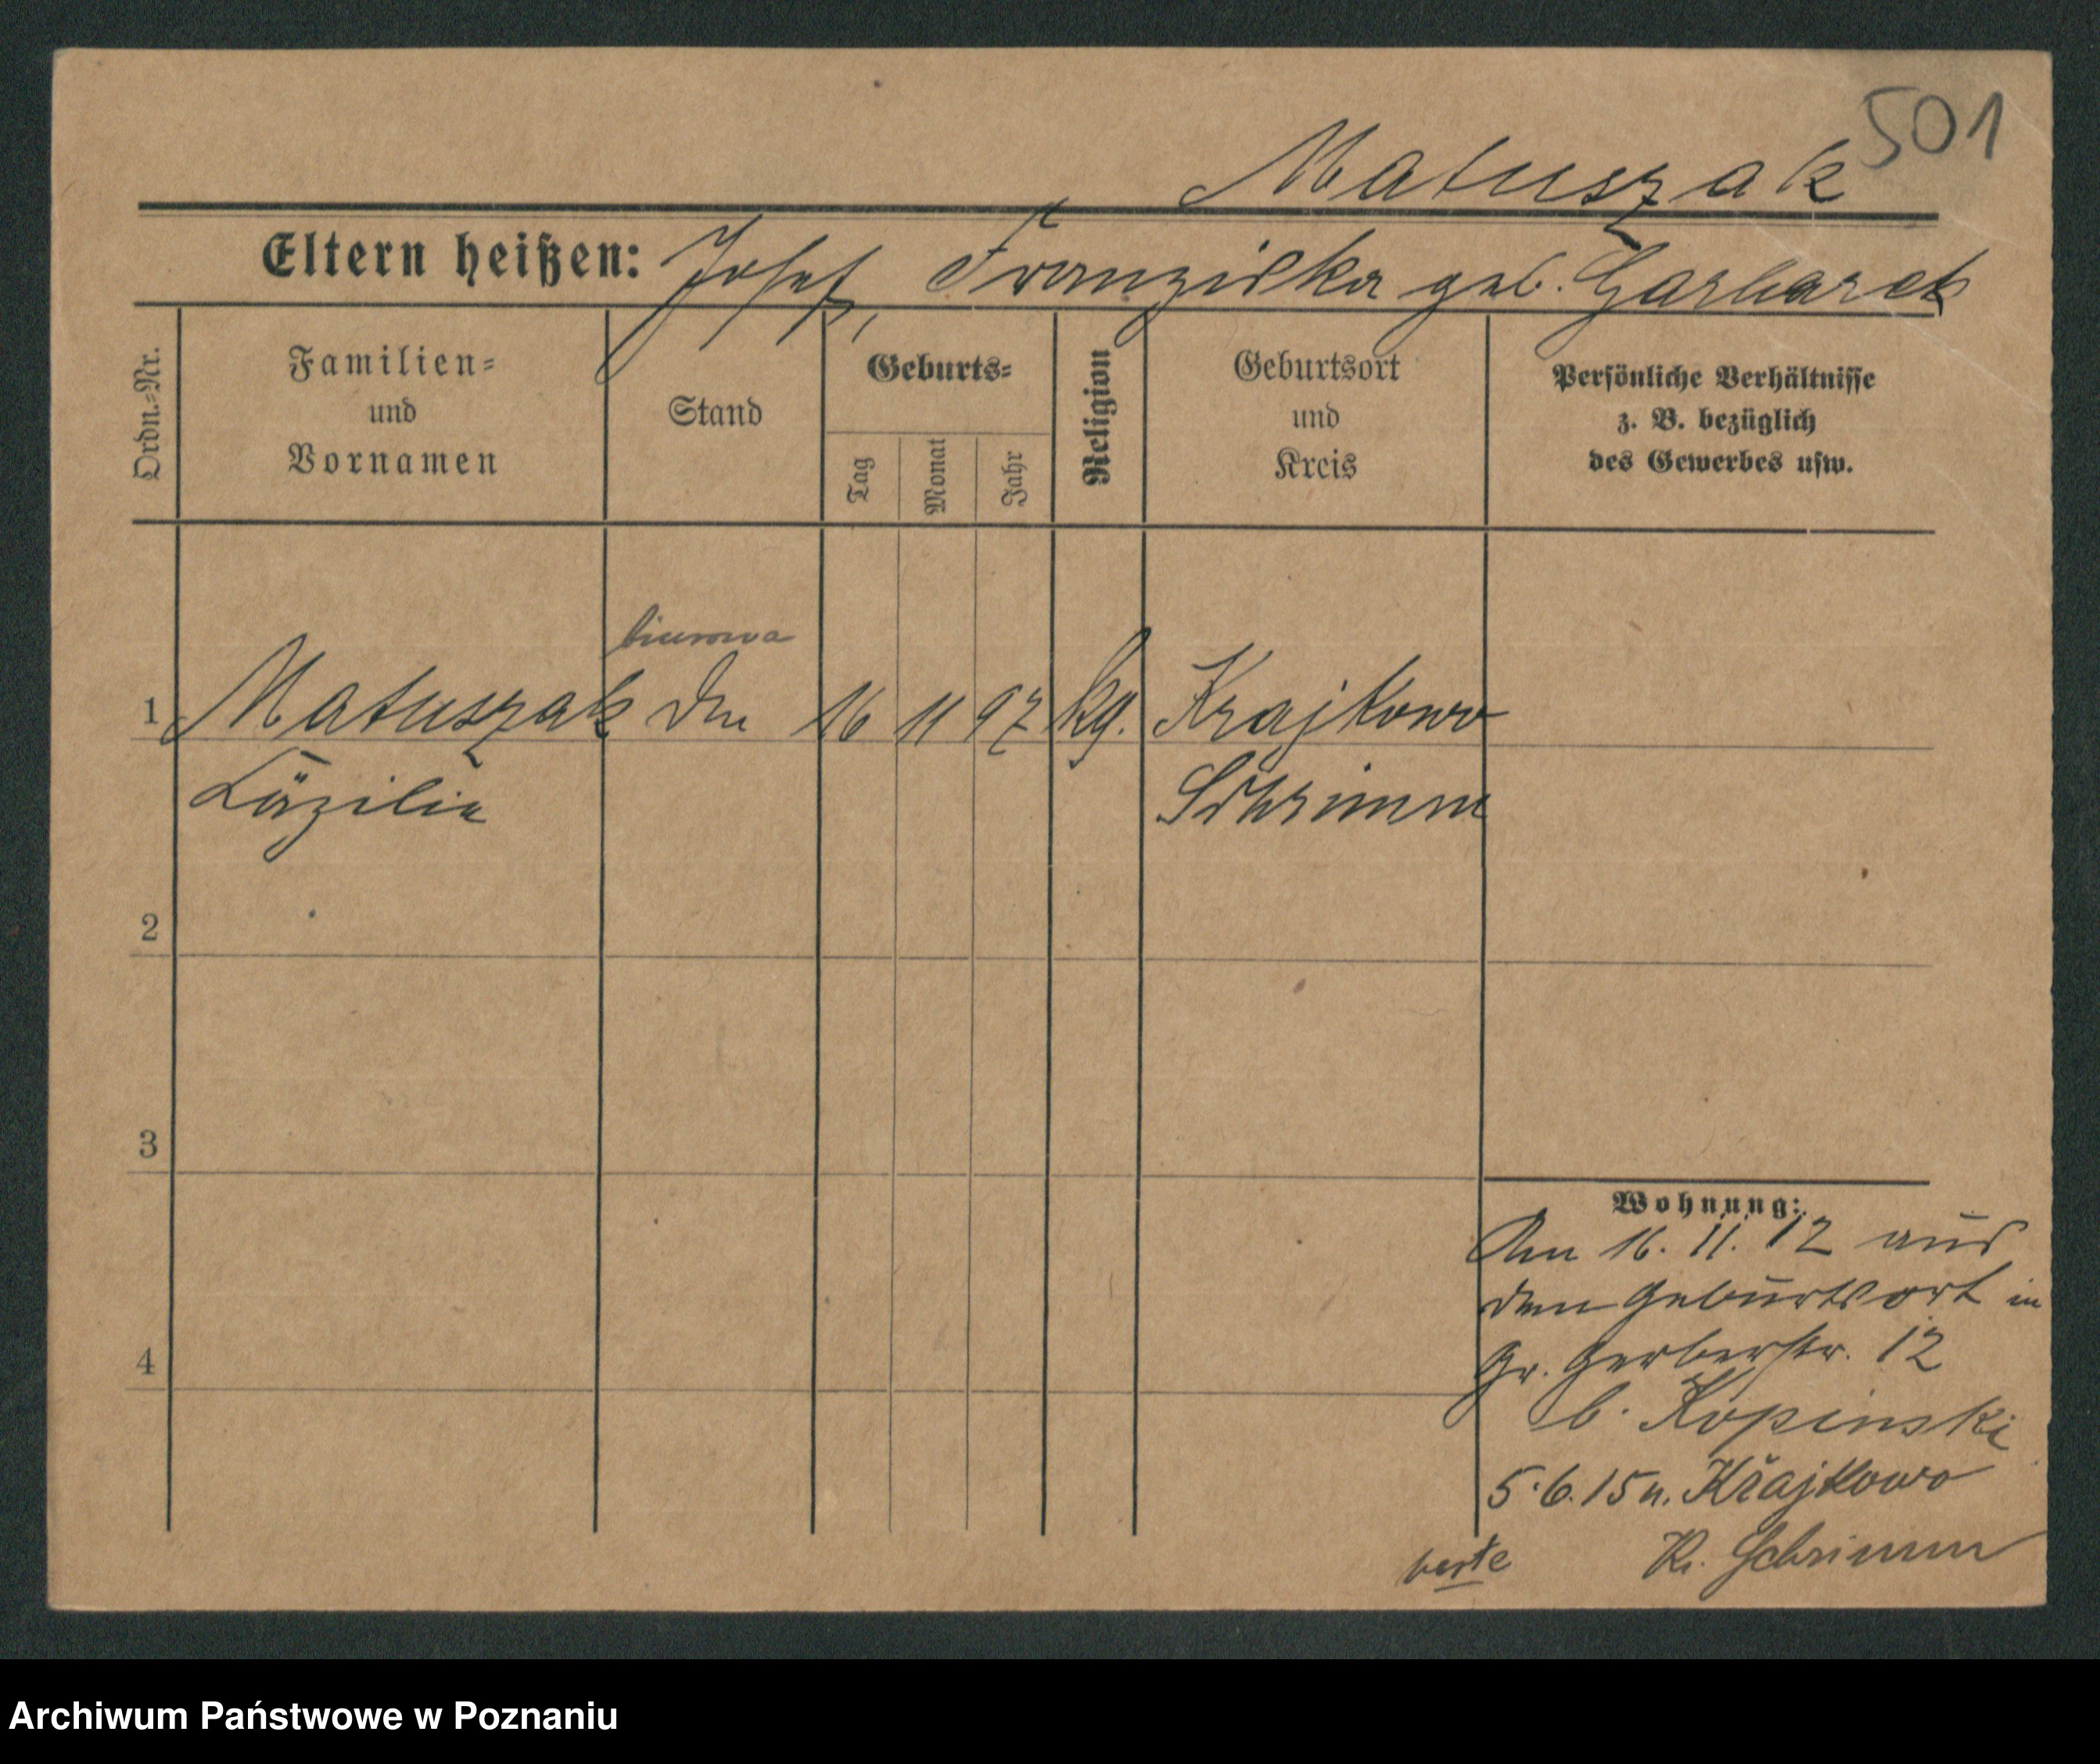 501
Matuszak
Eltern heißen: Josef, Franziska geb. Garbarek
Ordn.=Nr.
Familien=
und
Vornamen
Stand
Geburts=
Tag
Monat
Jahr
Religion
Geburtsort
und
Kreis
Persönliche Verhältnisse
z. B. bezüglich
des Gewerbes usw.
biurowa
1 Matuszak 16 11 97 kg. Krajkowo
Cäzilie Schrimm
2
3
4
Wohnung:
Am 16. 11. 12 aus
dem Geburtsort in
Gr. Gerberstr. 12
b. Kopinski
5.6.15 n. Krajkowo
Kr. Schrimm
Archiwum Państwowe w Poznaniu